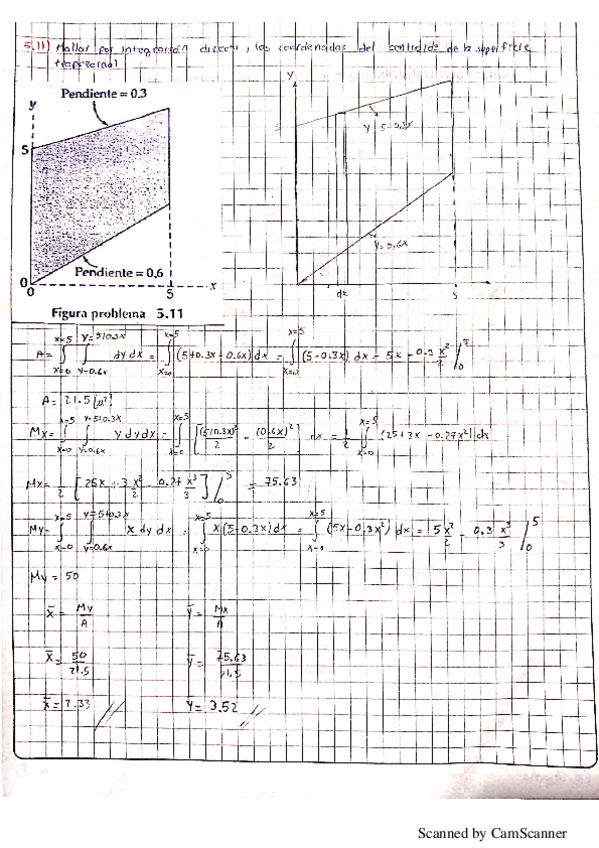 5.11) Hallar por integración directa, las coordenadas del centroide de la superficie
trapezoidal
Pendiente = 0.3
y
5
Pendiente = 0,6
0
0
5
x
Figura problema 5.11
y
5
y = 5-0.3x
y=0.6x
dx
5
A= ∫x=0 x=5 ∫y=0.6x y=5+0.3x dy dx = ∫x=0 x=5 (5+0.3x-0.6x) dx = ∫x=0 x=5 (5-0.3x) dx = 5x - 0.3 x²/2 /0 5
A= 21.5 [u²]
Mx= ∫x=0 x=5 ∫y=0.6x y=5+0.3x y dy dx = ∫x=0 x=5 [(5+0.3x)²/2 - (0.6x)²/2] dx = 1/2 ∫x=0 x=5 (25+3x-0.27x²) dx
Mx= 1/2 [25x + 3x²/2 - 0.27 x³/3] /0 5 = 75.63
My= ∫x=0 x=5 ∫y=0.6x y=5+0.3x x dy dx = ∫x=0 x=5 x(5-0.3x) dx = ∫x=0 x=5 (5x-0.3x²) dx = 5x²/2 - 0.3 x³/3 /0 5
My = 50
x̄ = My/A ȳ = Mx/A
x̄ = 50/21.5 ȳ = 75.63/21.5
x̄ = 2.33 // ȳ = 3.52 //
Scanned by CamScanner